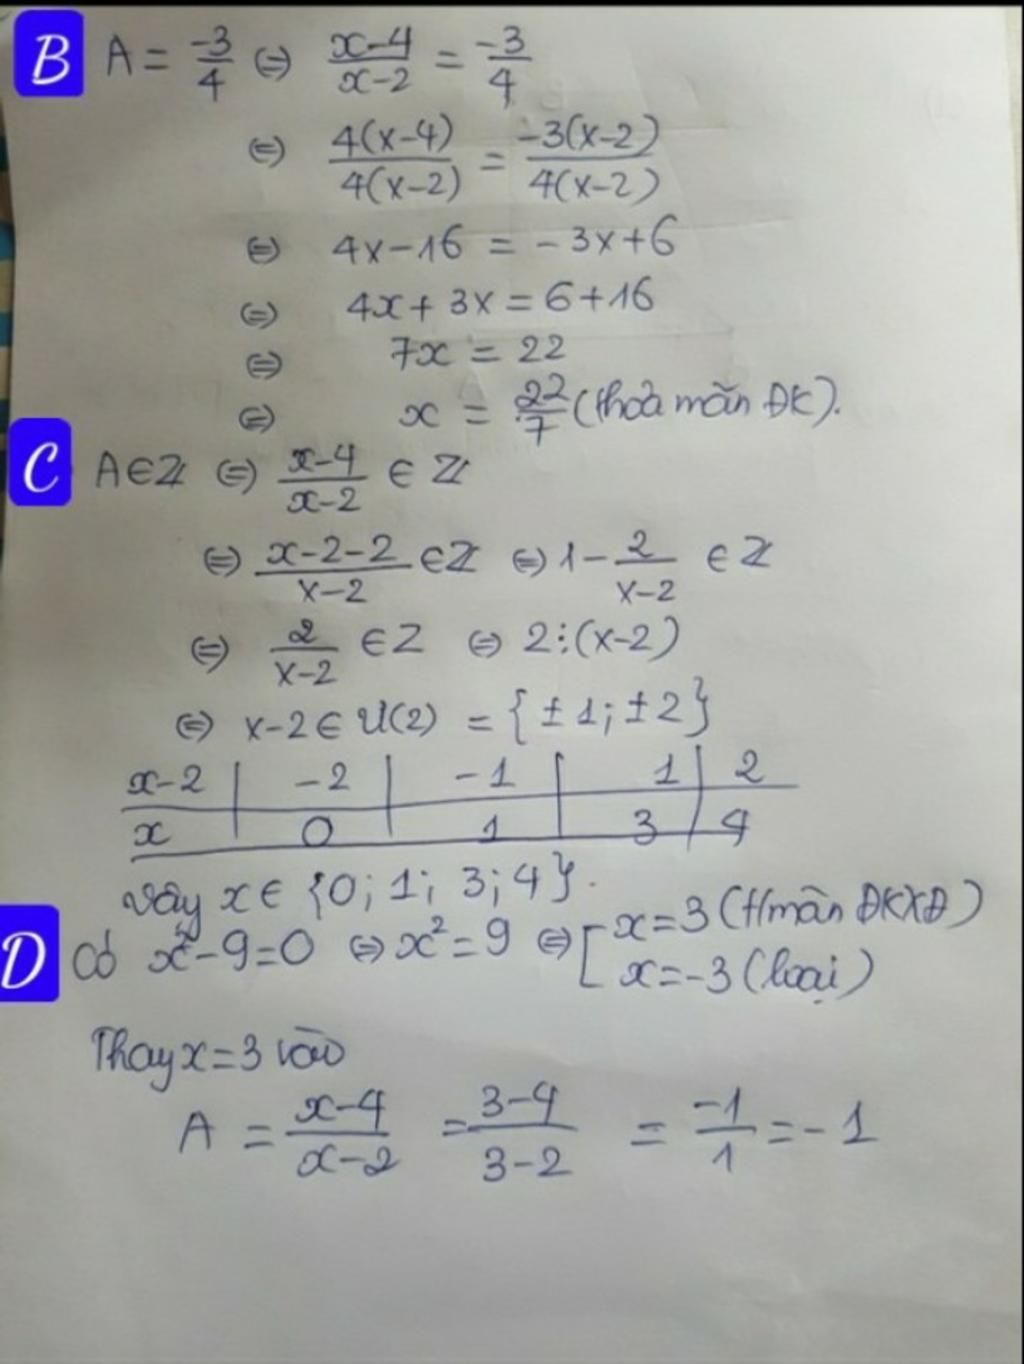 B A = -3/4 ⇔ x-4/x-2 = -3/4
⇔ 4(x-4)/4(x-2) = -3(x-2)/4(x-2)
⇔ 4x-16 = -3x+6
⇔ 4x+3x = 6+16
⇔ 7x = 22
⇔ x = 22/7 (thỏa mãn ĐK).
C A∈Z ⇔ x-4/x-2 ∈ Z
⇔ x-2-2/x-2 ∈Z ⇔ 1- 2/x-2 ∈ Z
⇔ 2/x-2 ∈Z ⇔ 2⋮(x-2)
⇔ x-2∈ Ư(2) = {±1; ±2}
x-2 | -2 | -1 | 1 | 2
x | 0 | 1 | 3 | 4
Vậy x∈ {0; 1; 3; 4}.
D Có x²-9=0 ⇔ x²=9 ⇔ [ x=3 (t/mãn ĐKXĐ)
x=-3 (loại)
Thay x=3 vào
A = x-4/x-2 = 3-4/3-2 = -1/1 = -1